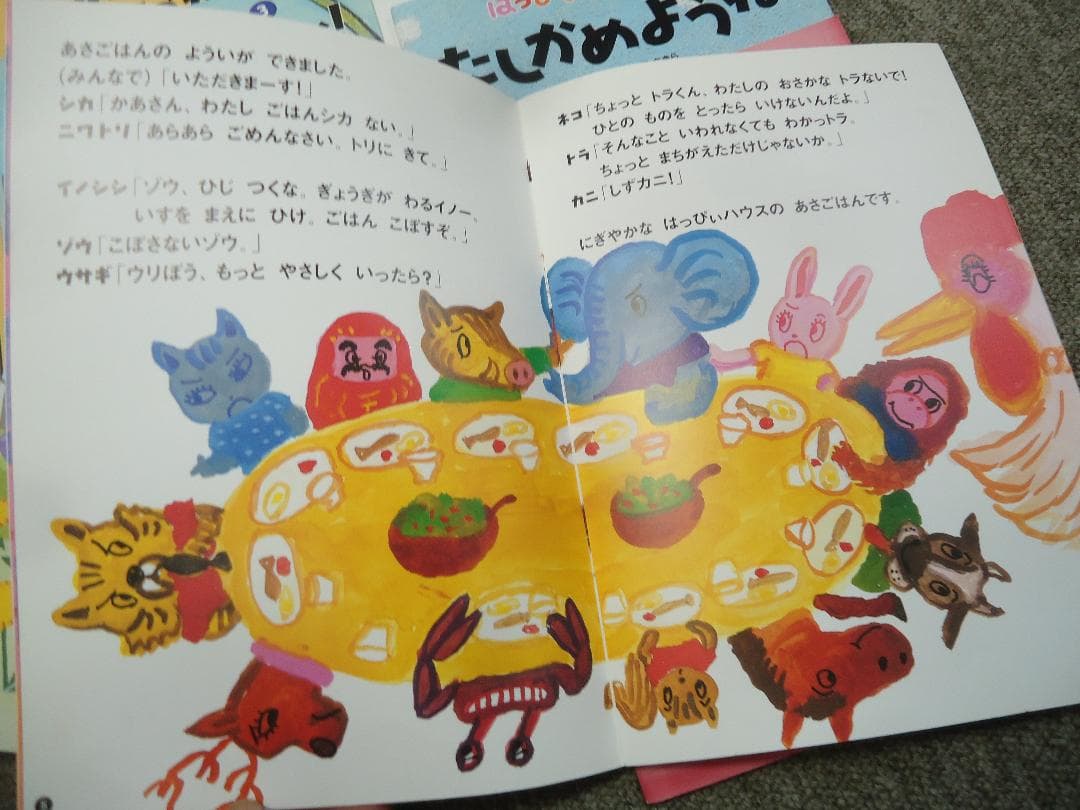 たしかめようね
あさごはんの よういが できました。
(みんなで)「いただきまーす!」
シカ「かあさん、わたし ごはんシカ ない。」
ニワトリ「あらあら ごめんなさい。トリに きて。」
イノシシ「ゾウ、ひじ つくな。ぎょうぎが わるイノー、
いすを まえに ひけ。ごはん こぼすぞ。」
ゾウ「こぼさないゾウ。」
ウサギ「ウリぼう、もっと やさしく いったら?」
ネコ「ちょっと トラくん、わたしの おさかな トラないで!
ひとの ものを とったら いけないんだよ。」
トラ「そんなこと いわれなくても わかっトラ。
ちょっと まちがえただけじゃないか。」
カニ「しずカニ!」
にぎやかな はっぴぃハウスの あさごはんです。